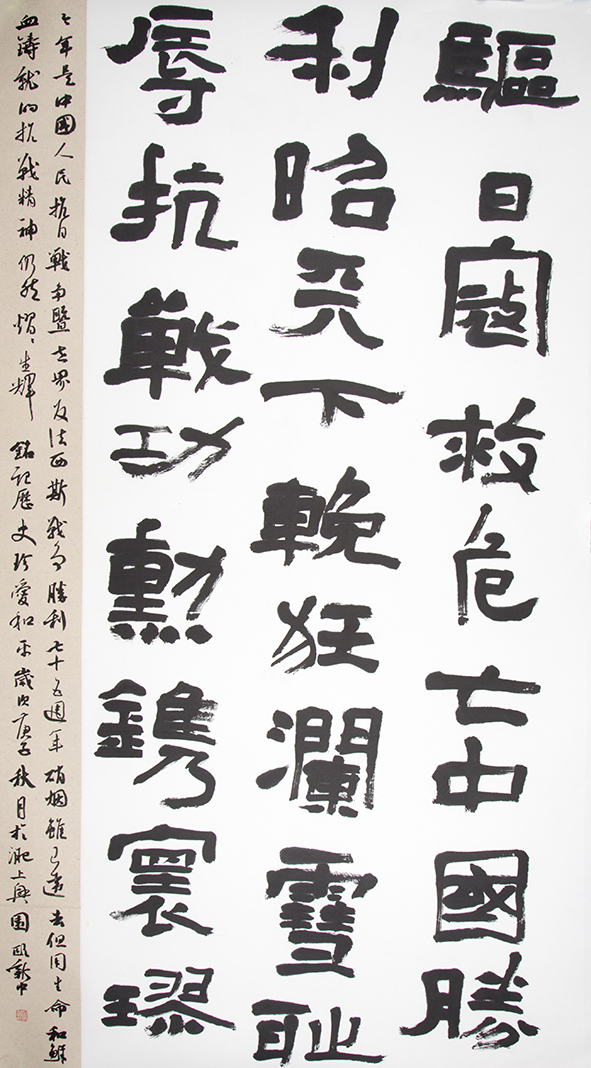 驅日寇救危亡中國勝
利昭天下輓狂瀾雪耻
辱抗戰功勳鐫寰璆
今年是中國人民抗日戰爭暨世界反法西斯戰爭勝利七十五週年硝烟雖已遠去但用生命和鮮
血鑄就的抗戰精神仍然熠〻生輝 銘記歷史珍愛和平歲次庚子秋月於淝上興園